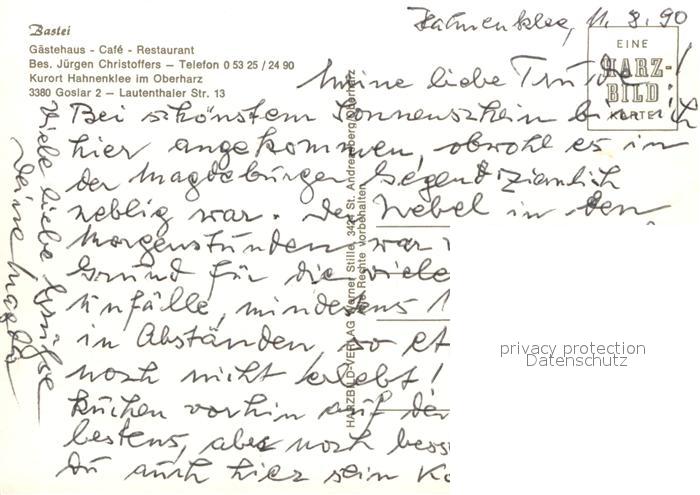 Bastei
Gästehaus - Café - Restaurant
Bes. Jürgen Christoffers — Telefon 0 53 25 / 24 90
Kurort Hahnenklee im Oberharz
3380 Goslar 2 — Lautenthaler Str. 13
Hahnenklee, 11. 8. 90
EINE
HARZ-
BILD
KARTE
Meine liebe
Bei schönstem Sonnenschein bin ich
hier angekommen, obwohl es in
der Magdeburger Gegend ziemlich
neblig war. Der Nebel in den
Morgenstunden war
Grund für die viele
Unfälle, mindestens
in Abständen, so et
noch nicht erlebt!
Kuchen vorhin auf der
bestens, aber noch bess
Du auch hier sein
Viele liebe Grüße
Deine Magda
HARZBILD-VERLAG Werner Stille, 3424 St. Andreasberg/Oberharz
Alle Rechte vorbehalten
privacy protection
Datenschutz